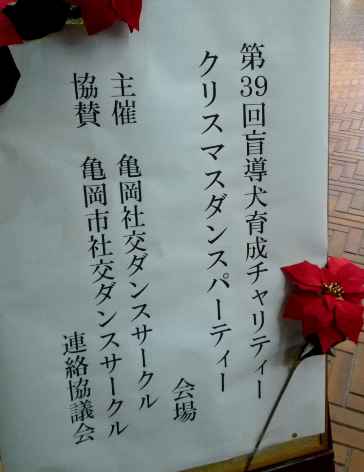 第39回盲導犬育成チャリティー
クリスマスダンスパーティー
会場
主催　亀岡社交ダンスサークル
協賛　亀岡市社交ダンスサークル
連絡協議会